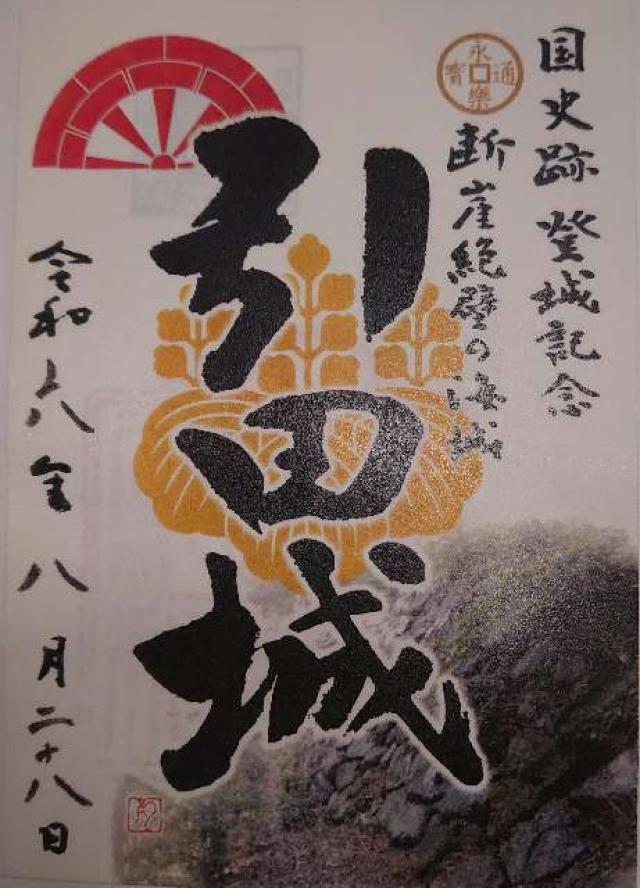 国史跡 登城記念
永樂通寳
断崖絶壁の海城
引田城
令和六年八月二十八日